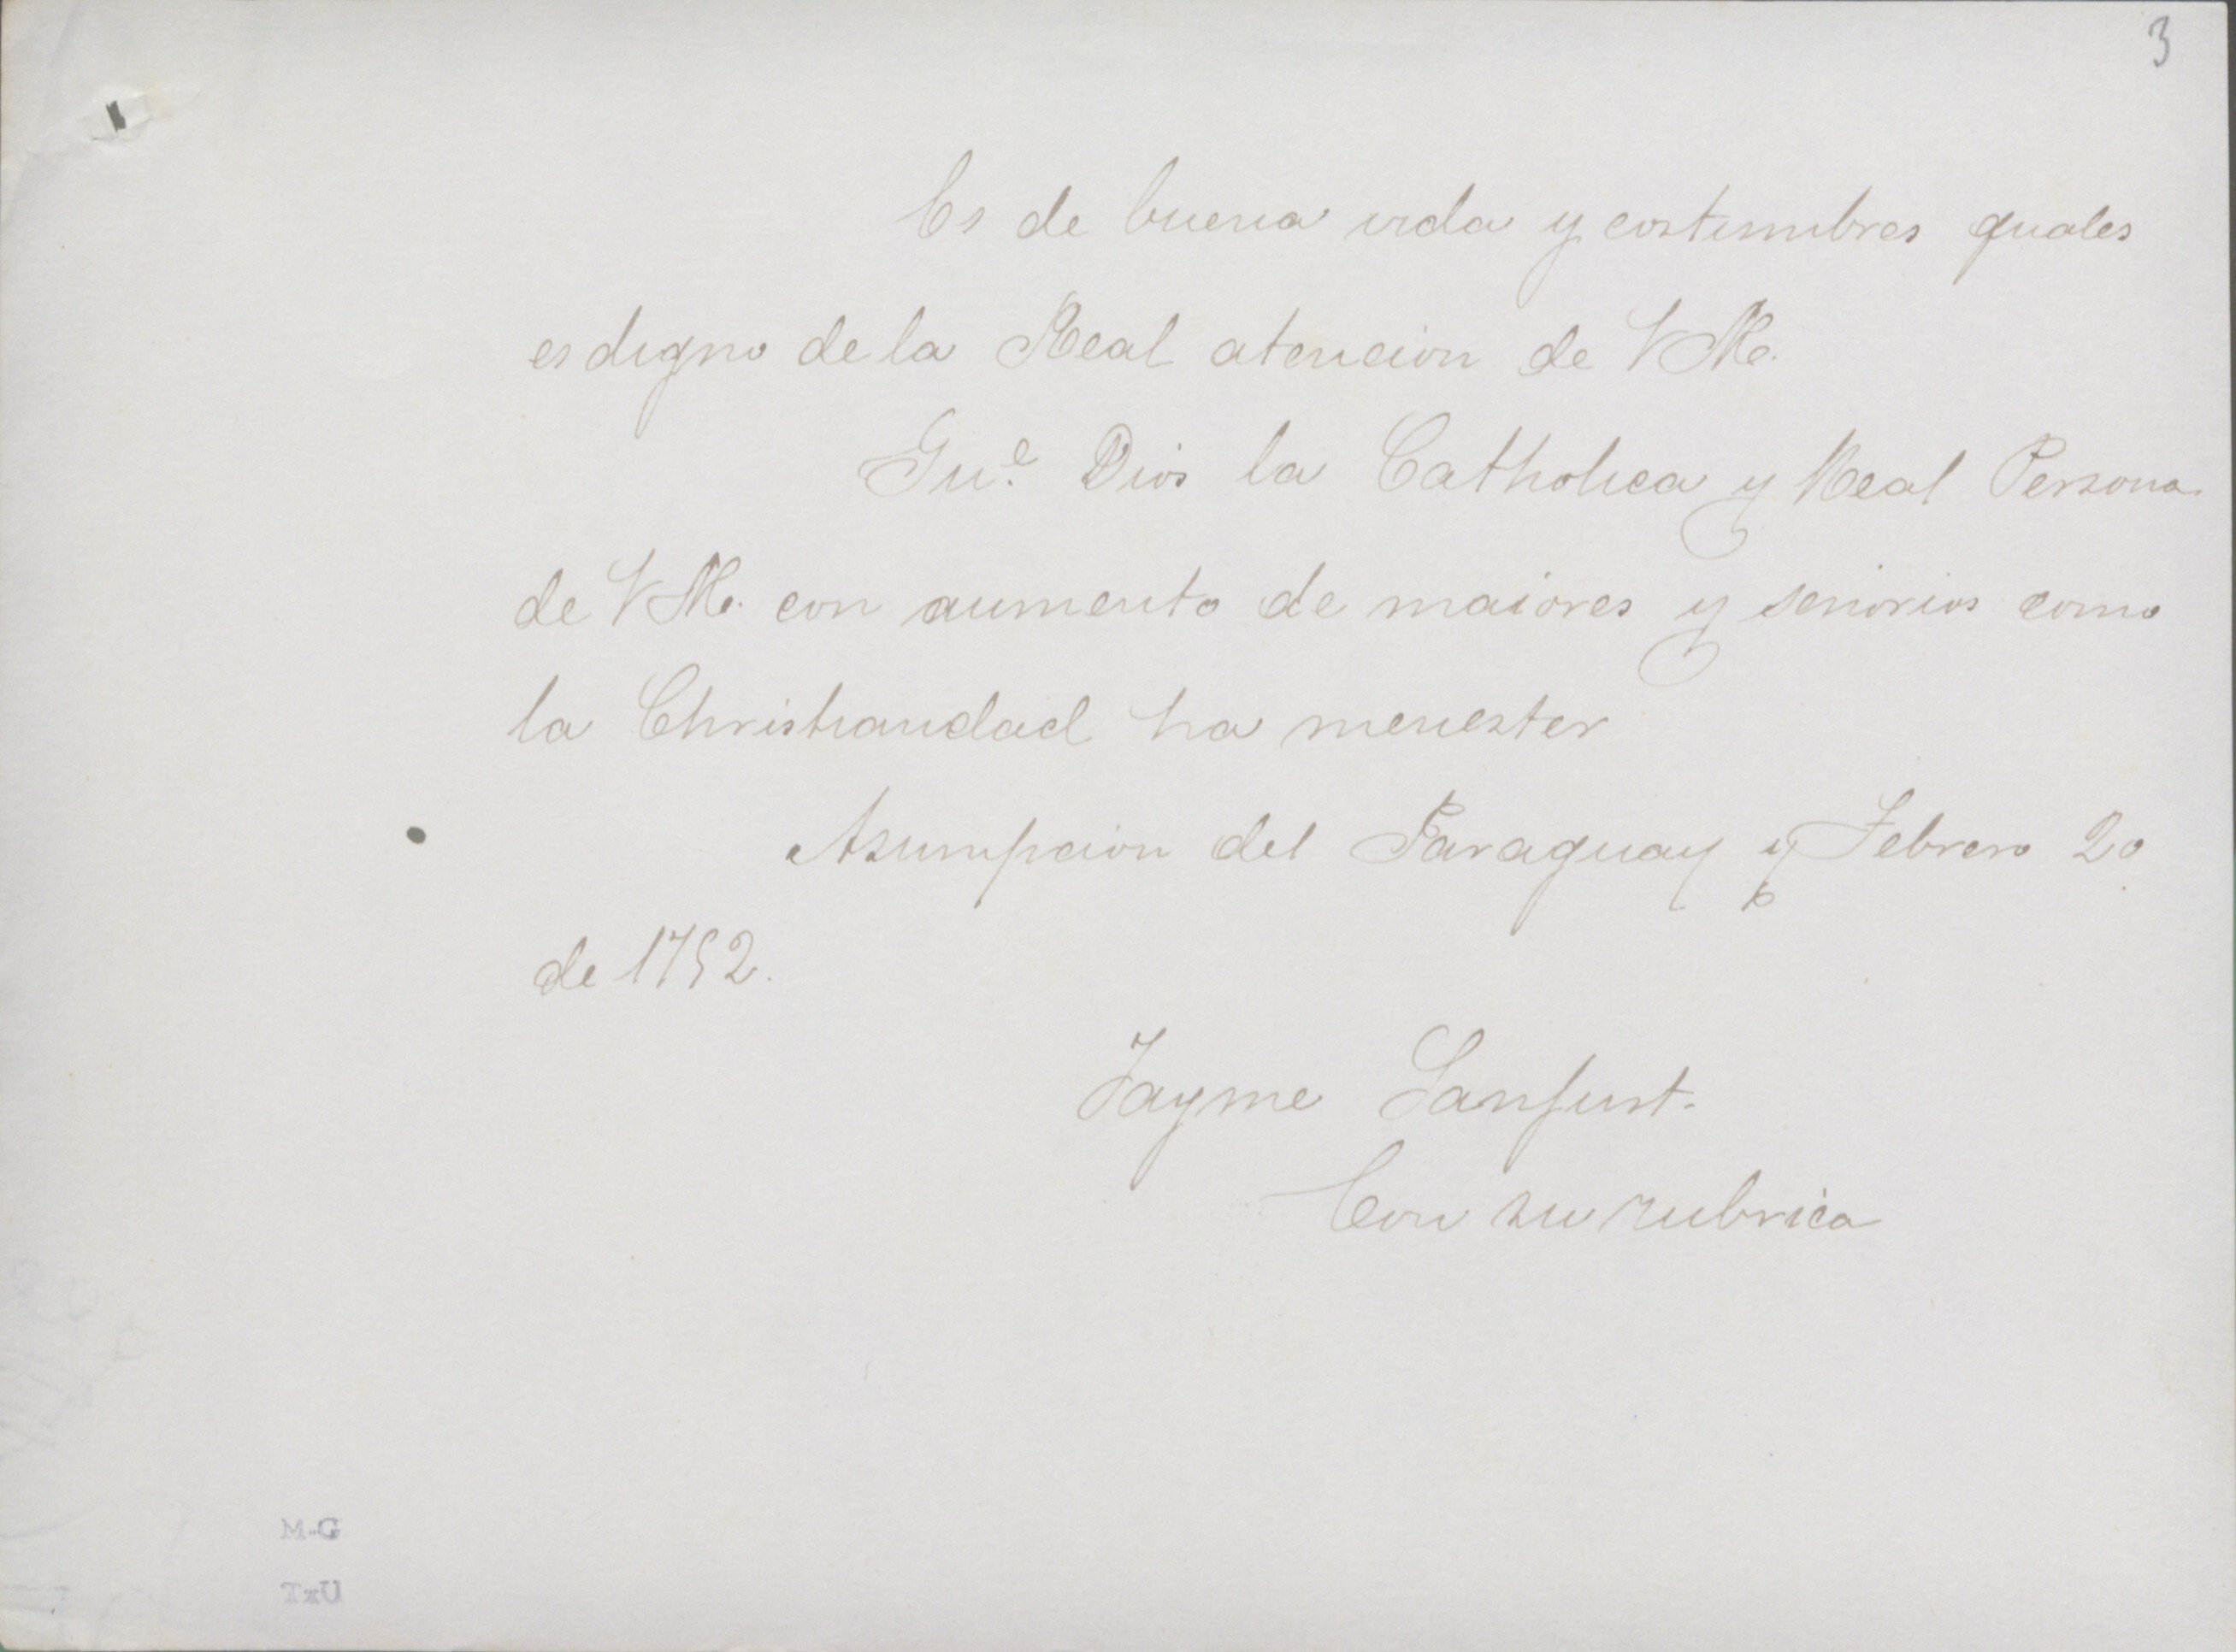 3
Es de buena vida y costumbres quales
es digno de la Real atencion de V M.
Gu.e Dios la Catholica y Real Persona
de V M. con aumento de maiores y senorios como
la Christiandad ha menester
Asumpcion del Paraguay y Febrero 20
de 1752.
Jayme Sanjust.
Con su rubrica
M-G
TxU